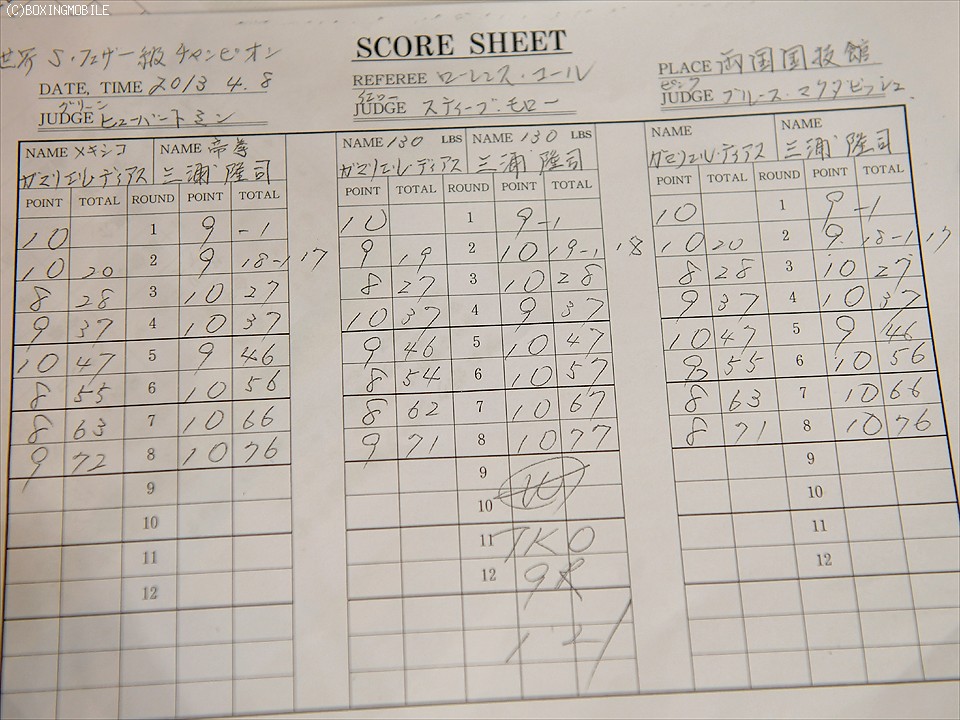 (C)BOXINGMOBILE
世界 S・フェザー級 チャンピオン
SCORE SHEET
DATE, TIME 2013 4. 8
REFEREE ローレンス・コール
PLACE 両国国技館
グリーン
JUDGE ヒューバートミン
イエロー
JUDGE スティーブ・モロー
ピンク
JUDGE ブルース・マクタビッシュ
NAME メキシコ NAME 帝拳 NAME 130 LBS NAME 130 LBS NAME NAME
ガマリエル・ディアス 三浦 隆司 ガマリエル・ディアス 三浦 隆司 ガマリエル・ディアス 三浦 隆司
POINT TOTAL ROUND POINT TOTAL POINT TOTAL ROUND POINT TOTAL POINT TOTAL ROUND POINT TOTAL
10 1 9 -1 10 1 9 -1 10 1 9 -1
10 20 2 9 18-1 17 9 19 2 10 19-1 18 10 20 2 9 18-1 17
8 28 3 10 27 8 27 3 10 28 8 28 3 10 27
9 37 4 10 37 10 37 4 9 37 9 37 4 10 37
10 47 5 9 46 9 46 5 10 47 10 47 5 9 46
8 55 6 10 56 8 54 6 10 57 8 55 6 10 56
8 63 7 10 66 8 62 7 10 67 8 63 7 10 66
9 72 8 10 76 9 71 8 10 77 8 71 8 10 76
9 9 9
10 10 10
11 11 TKO 11
12 12 9R 12
1 21